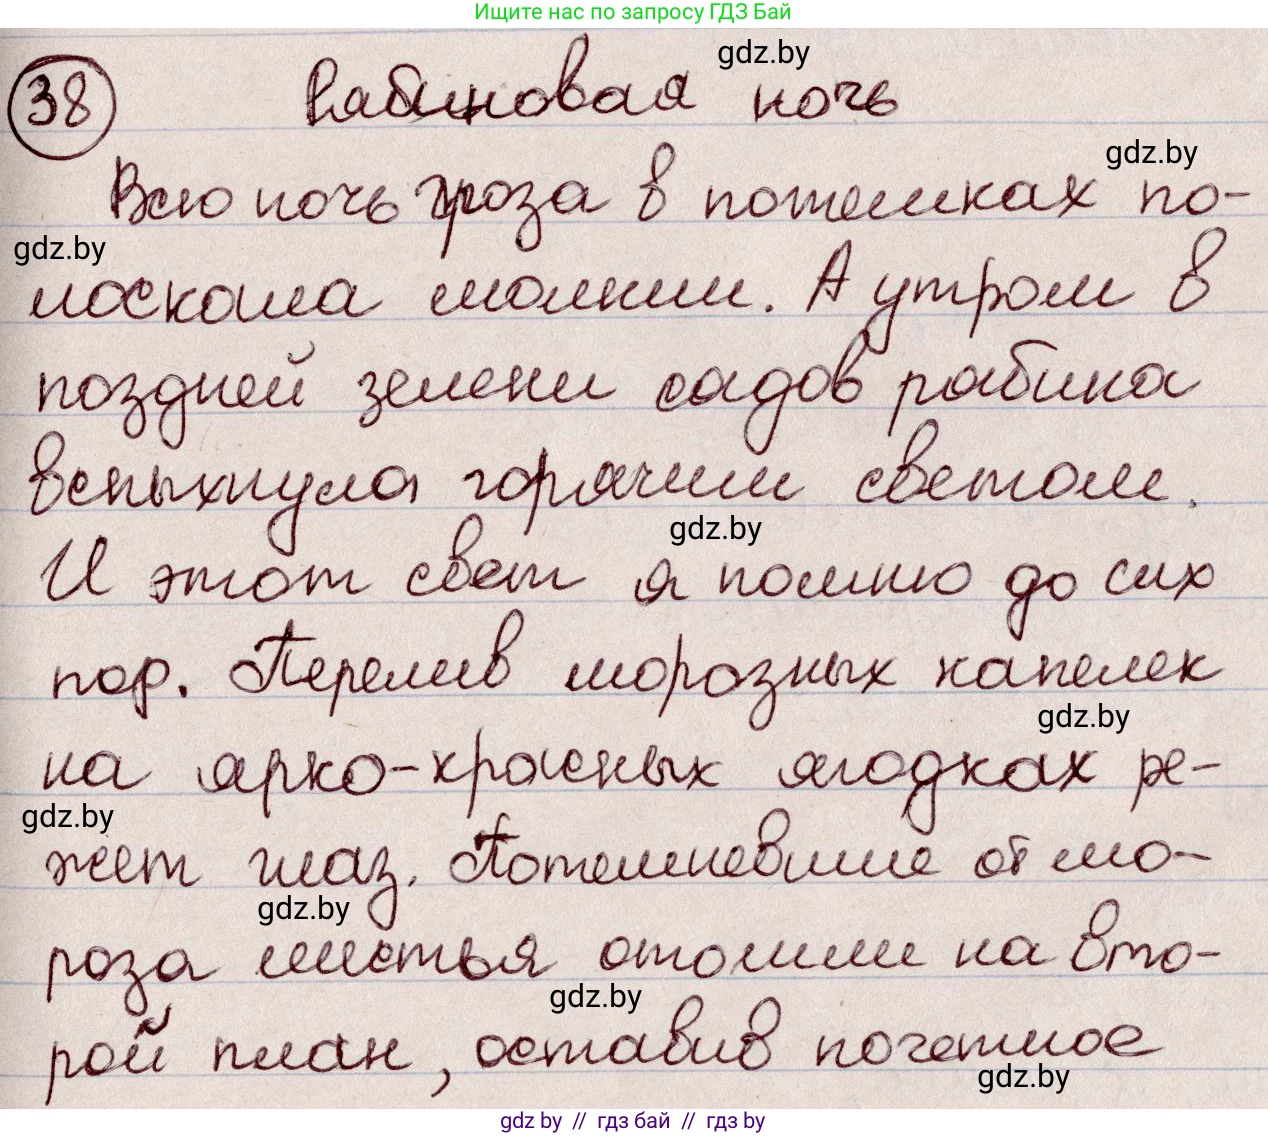 Ищите нас по запросу ГДЗ Бай
38 Рябиновая ночь
gdz.by
gdz.by
Всю ночь гроза в потемках по-
gdz.by
лоскала молнии. А утром в
поздней зелени садов рябина
вспыхнула горячим светом.
gdz.by
И этот свет я помню до сих
пор. Перелив морозных капелек
gdz.by
на ярко-красных ягодках ре-
gdz.by
жет глаз. Потемневшие от мо-
gdz.by
роза листья отошли на вто-
gdz.by
рой план, оставив почетное
gdz.by
gdz by // гдз бай // гдз by